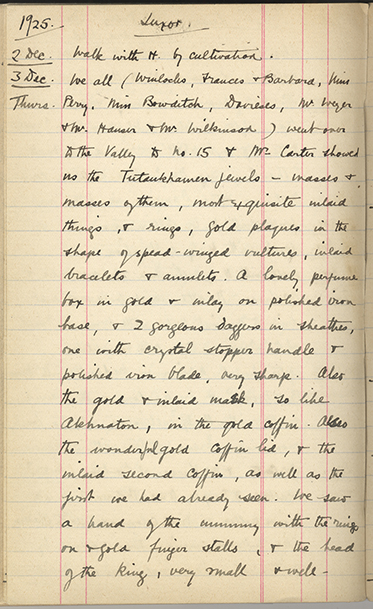 1925. Luxor.
2 Dec. Walk with H. by cultivation.
3 Dec. We all (Winlocks, Frances & Barbara, Miss
Thurs. Perry, Miss Bowditch, Davieses, Mr Weyer
& Mr. Hauser & Mr. Wilkinson) went over
to the Valley to No. 15 & Mr. Carter showed
us the Tutankhamen jewels – masses &
masses of them, most exquisite inlaid
things, & rings, gold plaques in the
shape of spead-winged vultures, inlaid
bracelets & amulets. A lovely perfume
box in gold & inlay on polished iron
base, & 2 gorgeous daggers in sheathes,
one with crystal stopper handle &
polished iron blade, very sharp. Also
the gold & inlaid mask, so like
Akhnaton, in the gold coffin. Also
the wonderful gold coffin lid, & the
inlaid second coffin, as well as the
first we had already seen. We saw
a hand of the mummy with the rings
on & gold finger stalls, & the head
of the King, very small & well-